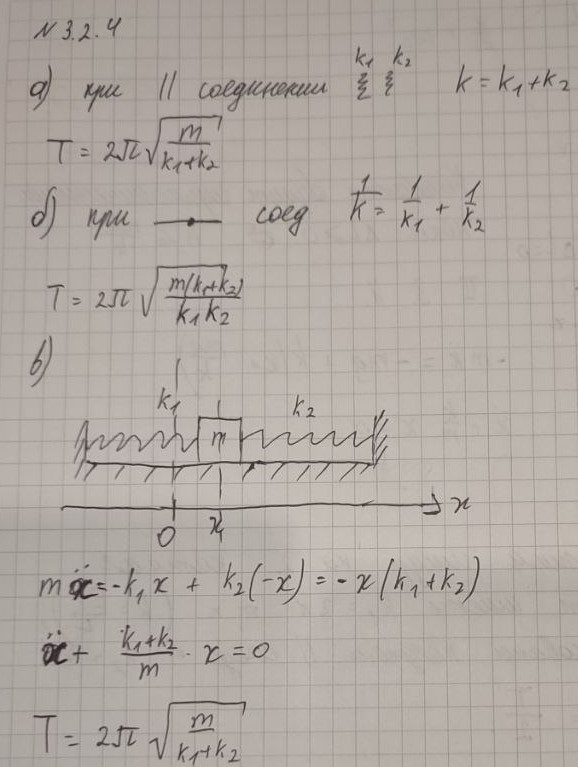 N 3.2.4
а) при || соединении k₁ k₂ k = k₁ + k₂
T = 2π √(m/(k₁+k₂))
б) при —•— соед 1/k = 1/k₁ + 1/k₂
T = 2π √(m(k₁+k₂)/(k₁k₂))
в)
k₁ m k₂
0 x₁ x
mẍ = -k₁x + k₂(-x) = -x(k₁+k₂)
ẍ + (k₁+k₂)/m · x = 0
T = 2π √(m/(k₁+k₂))